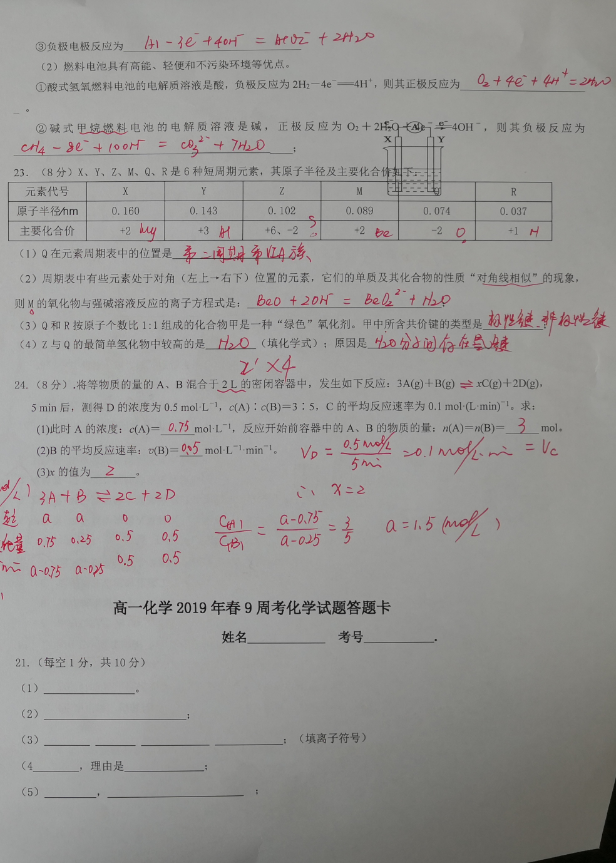 ③负极电极反应为 Al-3e⁻+4OH⁻=AlO₂⁻+2H₂O
(2)燃料电池具有高能、轻便和不污染环境等优点。
①酸式氢氧燃料电池的电解质溶液是酸,负极反应为2H₂-4e⁻══4H⁺,则其正极反应为 O₂+4e⁻+4H⁺=2H₂O
。
②碱式甲烷燃料电池的电解质溶液是碱,正极反应为O₂+2H₂O+4e⁻══4OH⁻,则其负极反应为
CH₄-8e⁻+10OH⁻=CO₃²⁻+7H₂O;
X Y
23.(8分)X、Y、Z、M、Q、R是6种短周期元素,其原子半径及主要化合价如下:
元素代号 X Y Z M Q R
原子半径/nm 0.160 0.143 0.102 0.089 0.074 0.037
主要化合价 +2 Mg +3 Al +6、-2 S +2 Be -2 O +1 H
(1)Q在元素周期表中的位置是 第二周期第ⅥA族、
(2)周期表中有些元素处于对角(左上→右下)位置的元素,它们的单质及其化合物的性质“对角线相似”的现象,
则M的氧化物与强碱溶液反应的离子方程式是: BeO+2OH⁻=BeO₂²⁻+H₂O
(3)Q和R按原子个数比1:1组成的化合物甲是一种“绿色”氧化剂。甲中所含共价键的类型是 极性键、非极性键
(4)Z与Q的最简单氢化物中较高的是 H₂O (填化学式);原因是 H₂O分子间存在氢键
2'×4
24.(8分).将等物质的量的A、B混合于2 L的密闭容器中,发生如下反应:3A(g)+B(g)⇌xC(g)+2D(g),
5 min后,测得D的浓度为0.5 mol·L⁻¹,c(A)∶c(B)=3∶5,C的平均反应速率为0.1 mol·(L·min)⁻¹。求:
(1)此时A的浓度:c(A)= 0.75 mol·L⁻¹,反应开始前容器中的A、B的物质的量:n(A)=n(B)= 3 mol。
(2)B的平均反应速率:v(B)= 0.05 mol·L⁻¹·min⁻¹。 V_D=0.5mol/L/5min=0.1mol/L·min=V_C
(3)x的值为 2 。 ∴ x=2
3A+B⇌2C+2D
起 a a 0 0
0.75 0.25 0.5 0.5
a-0.75 a-0.25 0.5 0.5
C(A)/C(B)=(a-0.75)/(a-0.25)=3/5 a=1.5(mol/L)
高一化学2019年春9周考化学试题答题卡
姓名 考号 .
21.(每空1分,共10分)
(1) 。
(2) ;
(3) ;(填离子符号)
(4 ,理由是 ;
(5) , ;